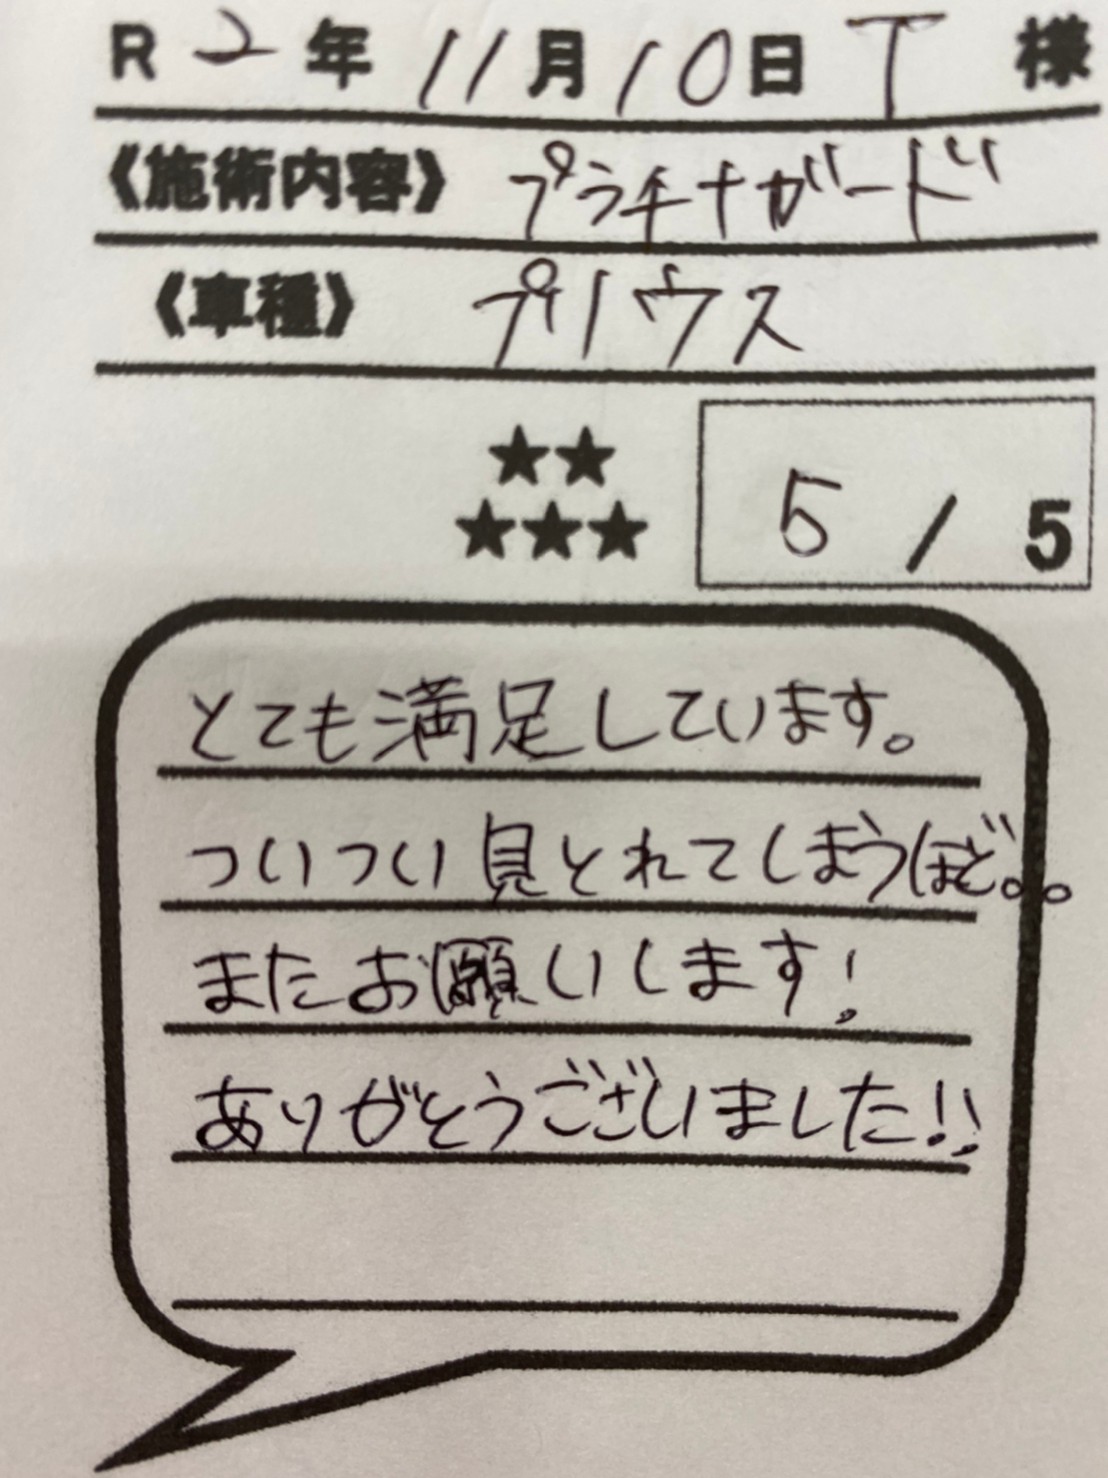 R 2年 11月10日 T 様
《施術内容》 プラチナガード
《車種》 プリウス
★★
★★★ 5 / 5
とても満足しています。
ついつい見とれてしまうほど。。
またお願いします!
ありがとうございました!!